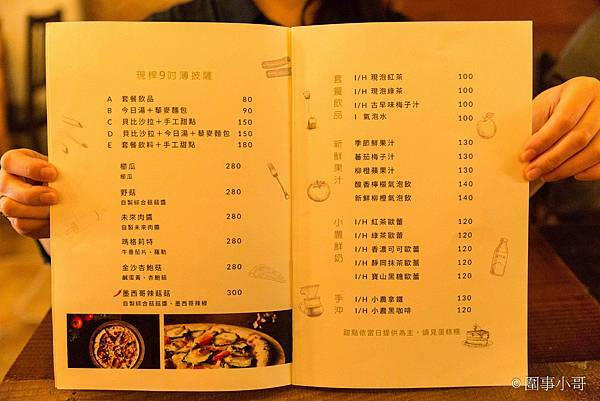 現桿9吋薄披薩
A 套餐飲品 80
B 今日湯+藜麥麵包 90
C 貝比沙拉+手工甜點 150
D 貝比沙拉+今日湯+藜麥麵包 150
E 套餐飲料+手工甜點 180
櫛瓜 280
櫛瓜
野菇 280
自製綜合菇菇醬
未來肉醬 280
自製未來肉醬
瑪格莉特 280
牛番茄片、羅勒
金沙杏鮑菇 280
鹹蛋黃、杏鮑菇
墨西哥辣菇菇 300
自製綜合菇菇醬、墨西哥辣椒
套餐飲品
I/H 現泡紅茶 100
I/H 現泡綠茶 100
I/H 古早味梅子汁 100
I 氣泡水 100
新鮮果汁
季節鮮果汁 130
蕃茄梅子汁 130
柳橙蘋果汁 130
酸香檸檬氣泡飲 140
新鮮柳橙氣泡飲 140
小農鮮奶
I/H 紅茶歐蕾 120
I/H 綠茶歐蕾 120
I/H 香濃可可歐蕾 120
I/H 靜岡抹茶歐蕾 120
I/H 寶山黑糖歐蕾 120
手沖
I/H 小農拿鐵 130
I/H 小農黑咖啡 120
甜點依當日提供為主，請見蛋糕櫃
© 圍事小哥